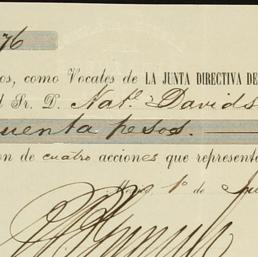 76
os, como Vocales de LA JUNTA DIRECTIVA DE
l Sr. D. Natl. Davids
cuenta pesos.
on de cuatro acciones que represent
1o de Ju